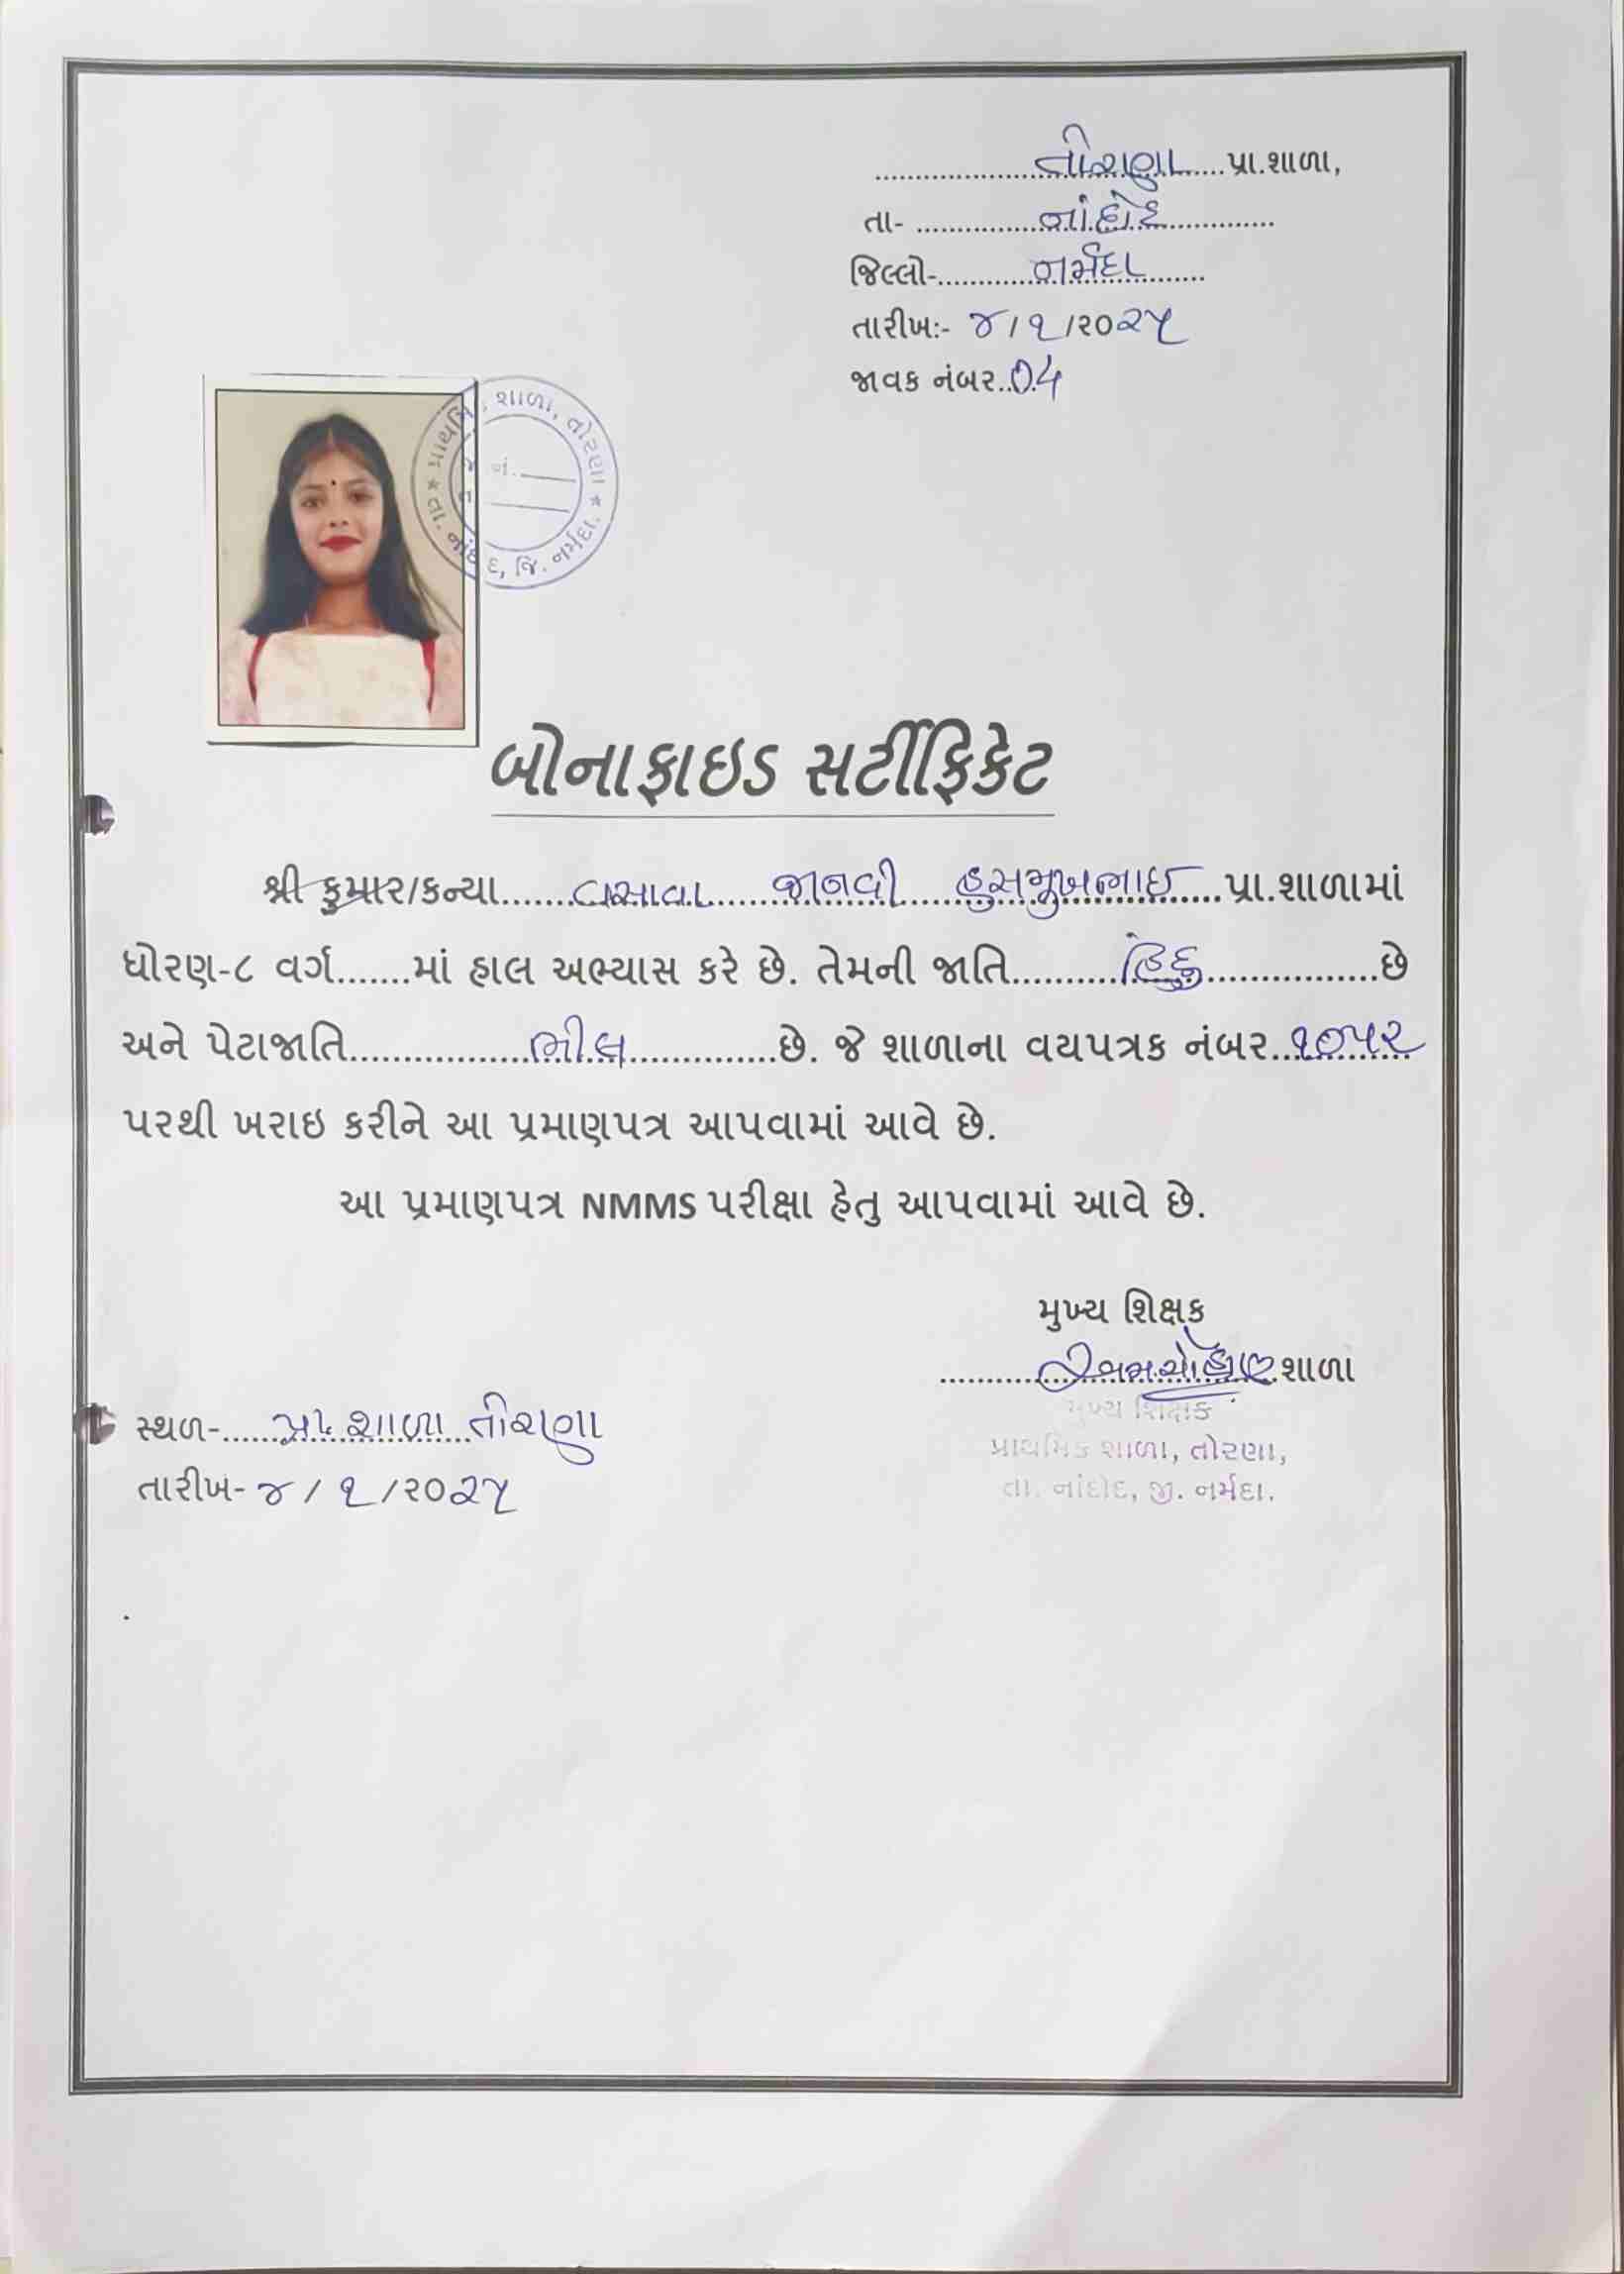 તોરણા પ્રા.શાળા,
તા- નાંદોદ
જિલ્લો- નર્મદા
તારીખ:- ૪/૧/૨૦૨૫
જાવક નંબર..04
પ્રાથમિક શાળા, તોરણા * તા. નાંદોદ, જિ. નર્મદા. *
નં.
બોનાફાઇડ સર્ટીફિકેટ
શ્રી કુમાર/કન્યા વસાવા જાનવી હસમુખભાઇ પ્રા.શાળામાં
ધોરણ-૮ વર્ગ.......માં હાલ અભ્યાસ કરે છે. તેમની જાતિ હિંદુ છે
અને પેટાજાતિ ભીલ છે. જે શાળાના વયપત્રક નંબર ૧૦૫૨
પરથી ખરાઇ કરીને આ પ્રમાણપત્ર આપવામાં આવે છે.
આ પ્રમાણપત્ર NMMS પરીક્ષા હેતુ આપવામાં આવે છે.
મુખ્ય શિક્ષક
શાળા
મુખ્ય શિક્ષક
પ્રાથમિક શાળા, તોરણા,
તા. નાંદોદ, જી. નર્મદા.
સ્થળ- પ્રા. શાળા તોરણા
તારીખ- ૪/૧/૨૦૨૫